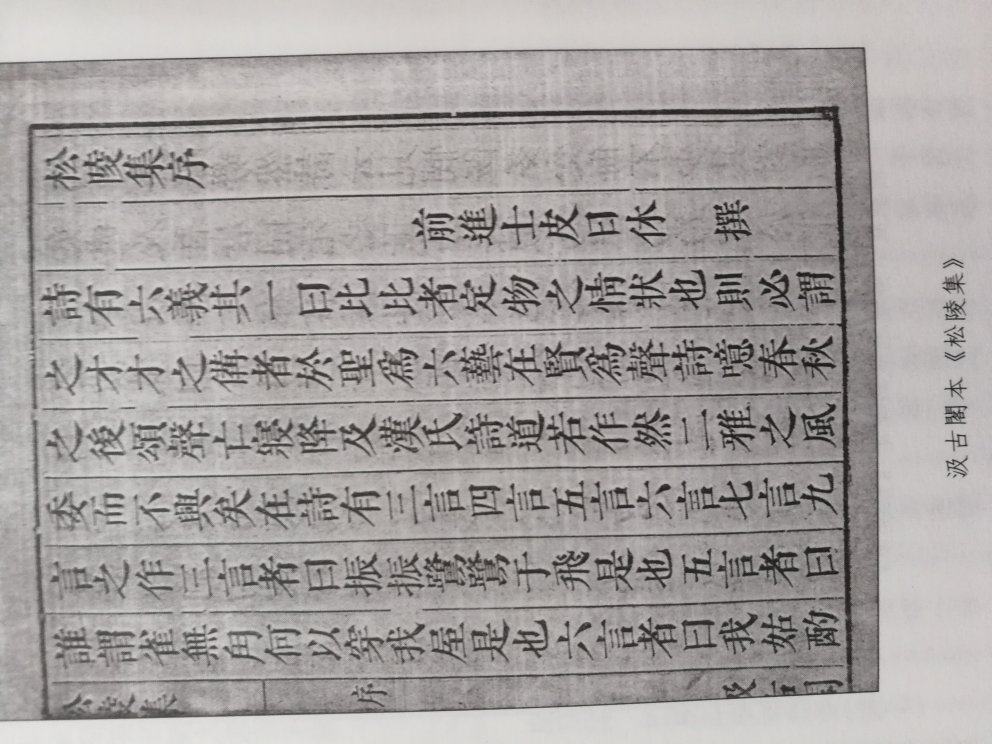 松陵集序
前進士皮日休 撰
詩有六義其一曰比比者定物之情狀也則必謂
之才才之備者於聖爲六藝在賢爲聲詩噫春秋
之後頌聲亡寢降及漢氏詩道若作然二雅之風
委而不興矣在詩有三言四言五言六言七言九
言之作三言者曰振振鷺鷺于飛是也五言者曰
誰謂雀無角何以穿我屋是也六言者曰我姑酌
松陵集 序 汲古閣
汲古閣本《松陵集》